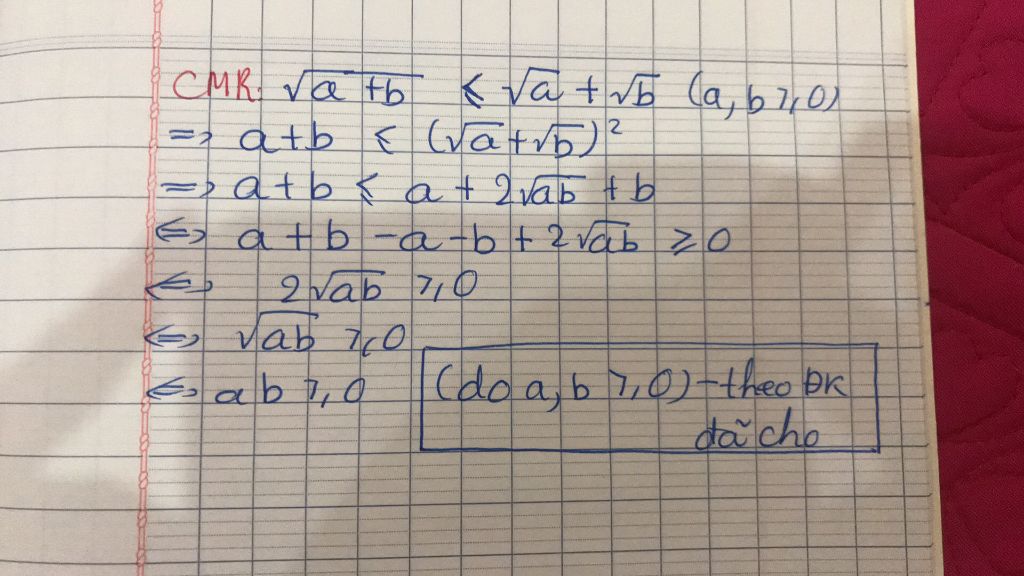 CMR: √(a+b) ≤ √a + √b (a, b ≥ 0)
=> a+b ≤ (√a+√b)²
=> a+b ≤ a + 2√ab + b
<=> a+b-a-b+2√ab ≥ 0
<=> 2√ab ≥ 0
<=> √ab ≥ 0
<=> ab ≥ 0 (do a, b ≥ 0) - theo ĐK
đã cho